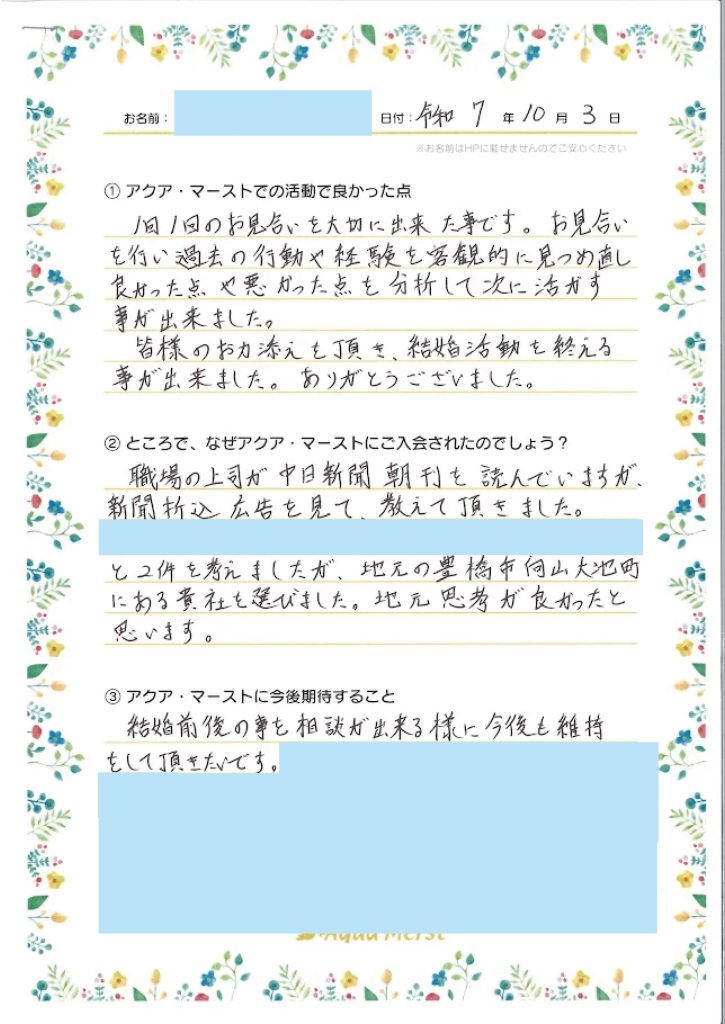 お名前： 日付：令和 7 年 10 月 3 日
※お名前はHPに載せませんのでご安心ください
① アクア・マーストでの活動で良かった点
1回1回のお見合いを大切に出来た事です。お見合い
を行い過去の行動や経験を客観的に見つめ直し
良かった点や悪かった点を分析して次に活かす
事が出来ました。
皆様のお力添えを頂き、結婚活動を終える
事が出来ました。ありがとうございました。
② ところで、なぜアクア・マーストにご入会されたのでしょう？
職場の上司が中日新聞朝刊を読んでいますが、
新聞折込広告を見て、教えて頂きました。
と2件を考えましたが、地元の豊橋市向山大池町
にある貴社を選びました。地元思考が良かったと
思います。
③ アクア・マーストに今後期待すること
結婚前後の事を相談が出来る様に今後も維持
をして頂きたいです。
Aqua Merst